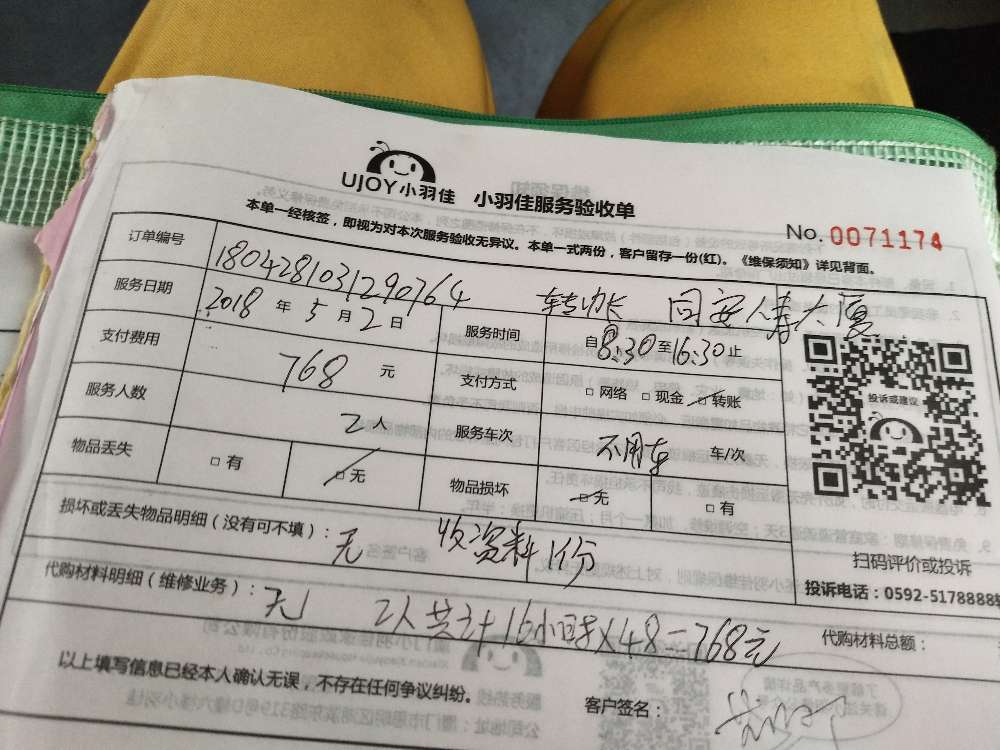 UJOY小羽佳 小羽佳服务验收单
No. 0071174
本单一经核签，即视为对本次服务验收无异议。本单一式两份，客户留存一份(红)。《维保须知》详见背面。
订单编号 1804281031290764 同安人寿大厦
服务日期 2018 年 5 月 2 日 服务时间 自8:30至16:30止
支付费用 768 元 支付方式 □ 网络 □ 现金 □ 转账
服务人数 2人 服务车次 不用车 车/次
物品丢失 □ 有 □ 无 物品损坏 □ 无 □ 有
投诉或建议
扫码评价或投诉
投诉电话：0592-5178885
损坏或丢失物品明细（没有可不填）：无 收资料1份
代购材料明细（维修业务）：无 2人共计16小时×48=768元 代购材料总额：
以上填写信息已经本人确认无误，不存在任何争议纠纷。 客户签名：